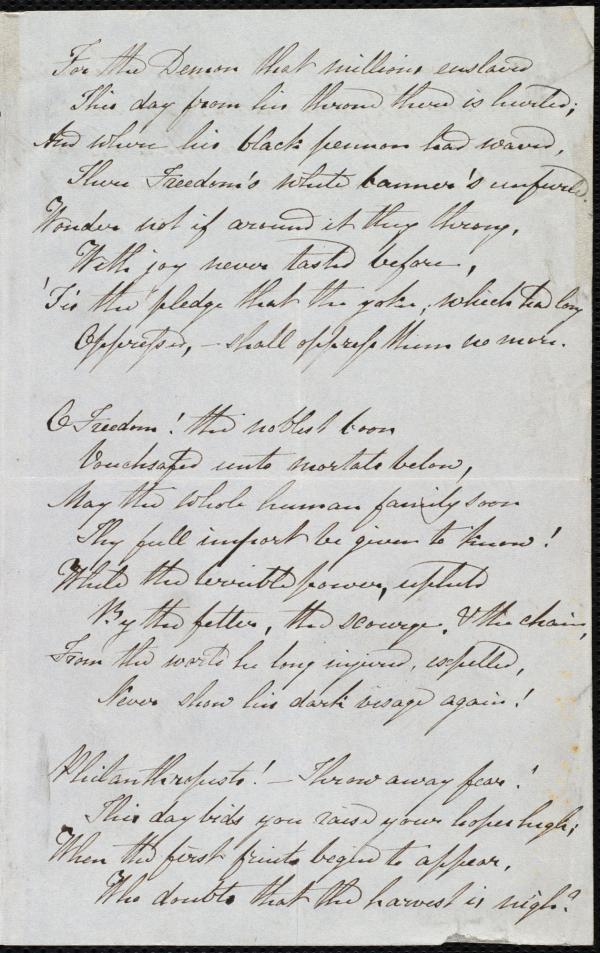 For the Demon that millions enslaved
This day from his throne there is hurled;
And where his black pennon had waved,
There Freedom's white banner's unfurled.
Wonder not if around it they throng,
With joy never tasted before,
'Tis the pledge that the yoke, which had long
Oppressed, – shall oppress them no more.
O Freedom! the noblest boon
Vouchsafed unto mortals below,
May the whole human family soon
Thy full import be given to know!
While the terrible power, upheld
By the fetter, the scourge, & the chain,
From the world he long injured, expelled,
Never show his dark visage again!
Philanthropists! – Throw away fear!
This day bids you raise your hopes high;
When the first fruits begin to appear,
Who doubts that the harvest is nigh?